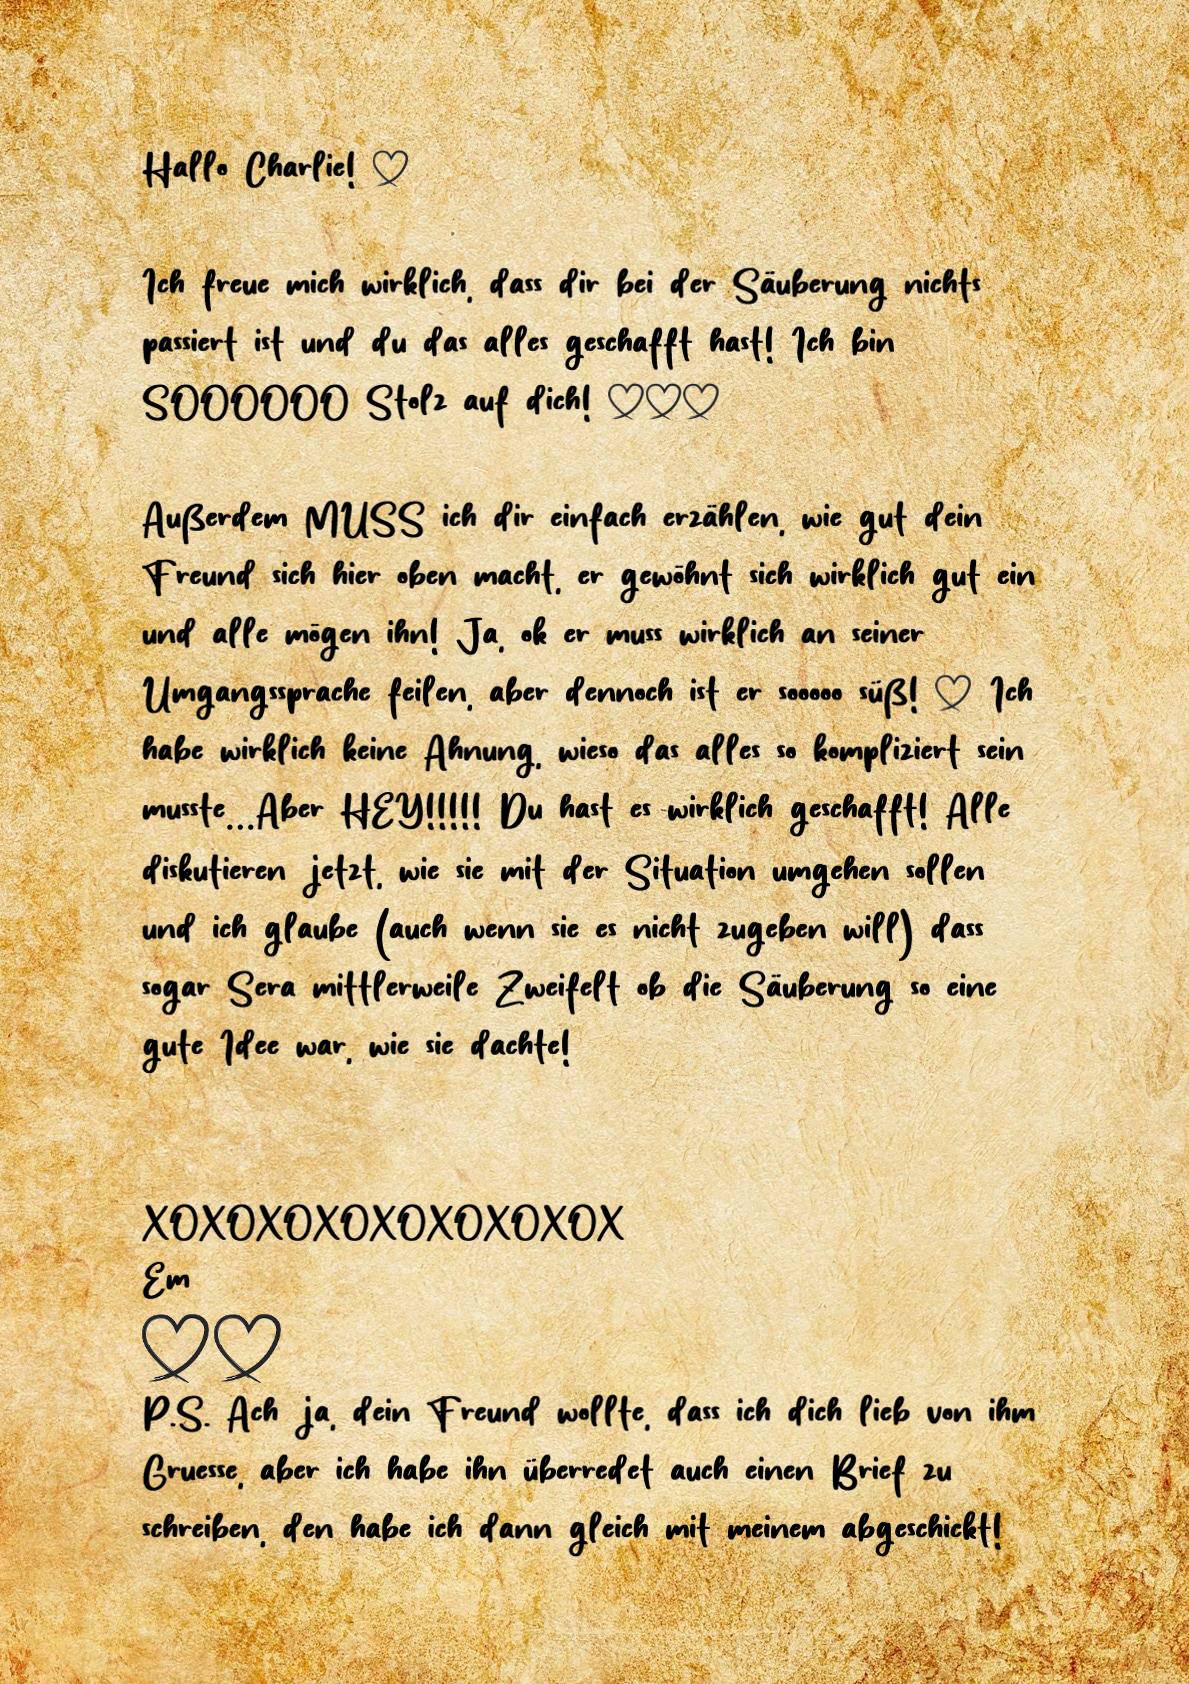 Hallo Charlie! ♡
Ich freue mich wirklich, dass dir bei der Säuberung nichts
passiert ist und du das alles geschafft hast! Ich bin
SOOOOOO Stolz auf dich! ♡♡♡
Außerdem MUSS ich dir einfach erzählen, wie gut dein
Freund sich hier oben macht, er gewöhnt sich wirklich gut ein
und alle mögen ihn! Ja, ok er muss wirklich an seiner
Umgangssprache feilen, aber dennoch ist er sooooo süß! ♡ Ich
habe wirklich keine Ahnung, wieso das alles so kompliziert sein
musste...Aber HEY!!!!! Du hast es wirklich geschafft! Alle
diskutieren jetzt, wie sie mit der Situation umgehen sollen
und ich glaube (auch wenn sie es nicht zugeben will) dass
sogar Sera mittlerweile Zweifelt ob die Säuberung so eine
gute Idee war, wie sie dachte!
XOXOXOXOXOXOXOXOX
Em
♡♡
P.S. Ach ja, dein Freund wollte, dass ich dich lieb von ihm
Gruesse, aber ich habe ihn überredet auch einen Brief zu
schreiben, den habe ich dann gleich mit meinem abgeschickt!